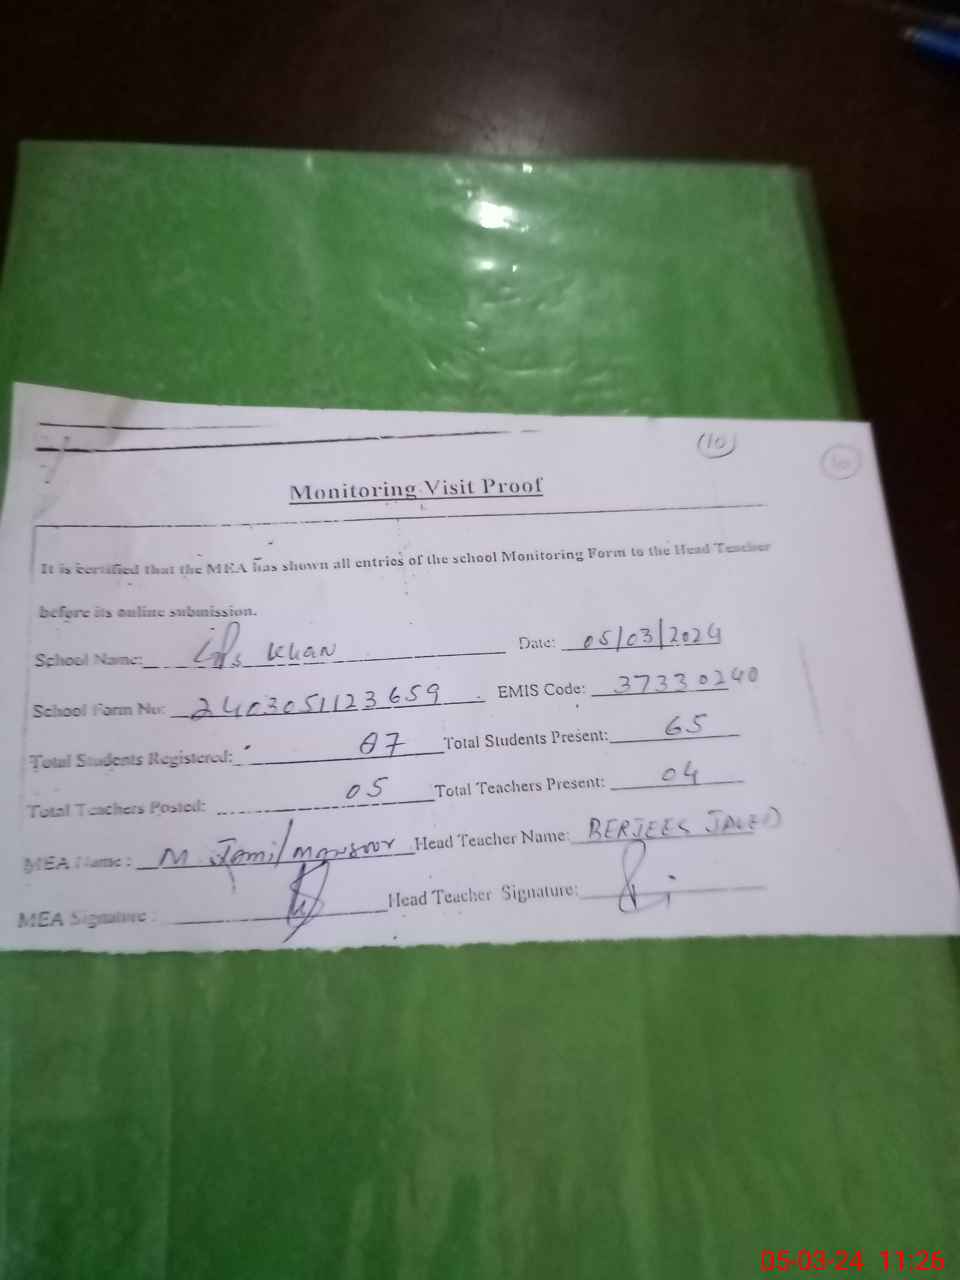 (10)
10
Monitoring Visit Proof
It is certified that the MEA has shown all entries of the school Monitoring Form to the Head Teacher
before its online submission.
School Name: GPS Khan Date: 05/03/2024
School Form No: 2403051123659 EMIS Code: 37330240
Total Students Registered: 87 Total Students Present: 65
Total Teachers Posted: 05 Total Teachers Present: 04
MEA Name: M. Jamil Mansoor Head Teacher Name: BERJEES JAVED
MEA Signature: Head Teacher Signature:
05-03-24 11:26